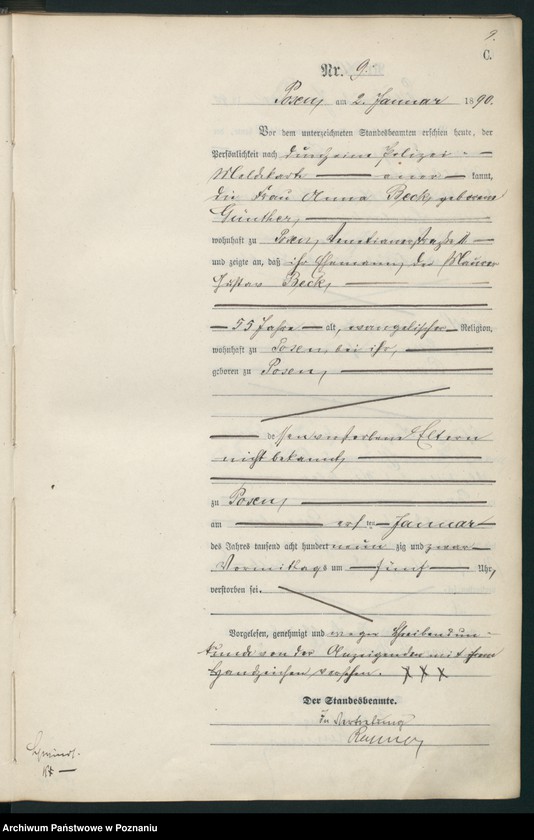 9.
C.
Nr. 9.
Posen, am 2. Januar 1890.
Vor dem unterzeichneten Standesbeamten erschien heute, der
Persönlichkeit nach durch eine Polizei-
Meldekarte aner kannt,
die Frau Anna Beck, geborene
Günther,
wohnhaft zu Posen, Venetianerstraße
und zeigte an, daß ihr Ehemann, der Maurer
Gustav Beck,
55 Jahre alt, evangelischer Religion,
wohnhaft zu Posen, bei ihr,
geboren zu Posen,
dessen verstorbene Eltern
nicht bekannt,
zu Posen,
am ersten Januar
des Jahres tausend acht hundert neun zig und zwar
Vormittags um fünf Uhr,
verstorben sei.
Vorgelesen, genehmigt und wegen Schreibensun-
kunde von der Anzeigenden mit ihrem
Handzeichen versehen. XXX
Der Standesbeamte.
In Vertretung
Archiwum Państwowe w Poznaniu